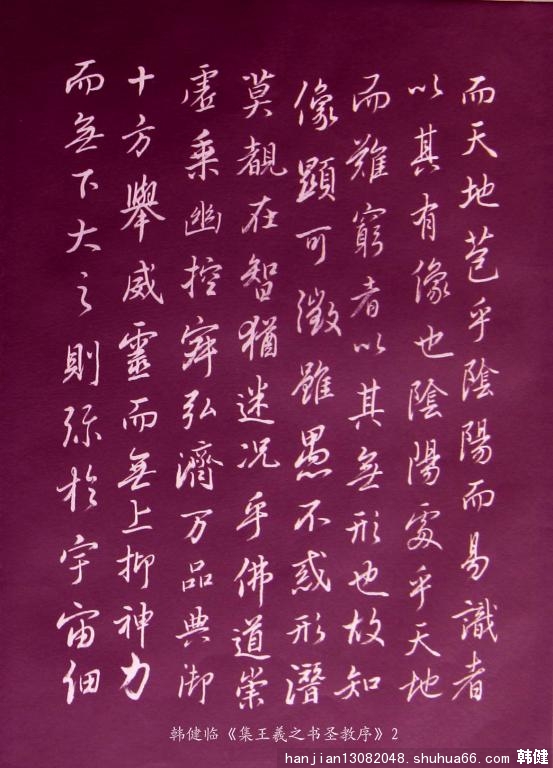 而天地苞乎陰陽而易識者
以其有像也陰陽處乎天地
而難窮者以其無形也故知
像顯可徵雖愚不惑形潛
莫覩在智猶迷况乎佛道崇
虛乘幽控寂弘濟万品典御
十方舉威靈而無上抑神力
而無下大之則弥於宇宙細
韩健临《集王羲之书圣教序》2
hanjian13082048.shuhua66.com 韩健